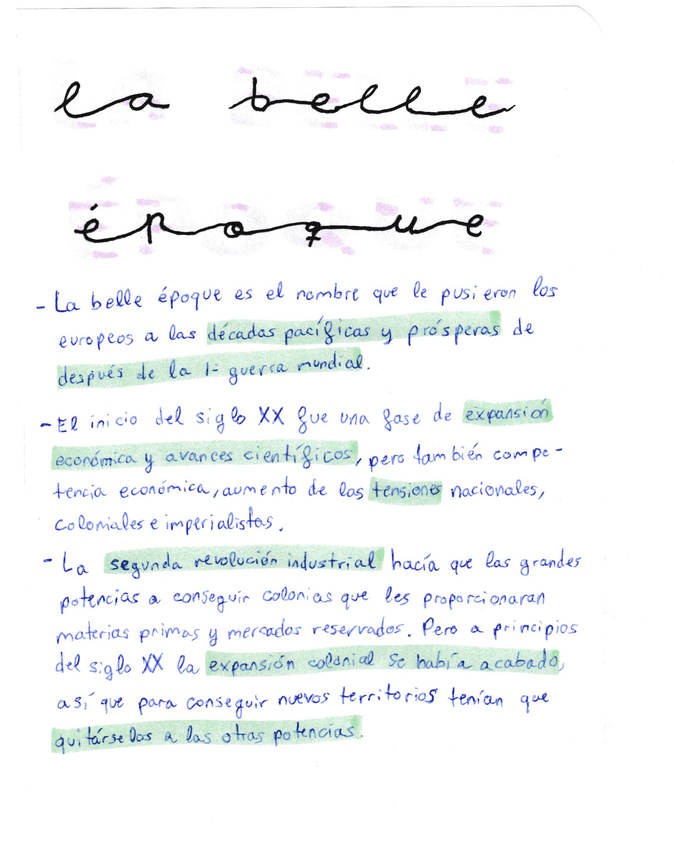 la belle
époque
- La belle époque es el nombre que le pusieron los
europeos a las décadas pacíficas y prósperas de
después de la 1ª guerra mundial.
- El inicio del siglo XX fue una fase de expansión
económica y avances científicos, pero también compe-
tencia económica, aumento de las tensiones nacionales,
coloniales e imperialistas.
- La segunda revolución industrial hacía que las grandes
potencias a conseguir colonias que les proporcionaran
materias primas y mercados reservados. Pero a principios
del siglo XX la expansión colonial se había acabado,
así que para conseguir nuevos territorios tenían que
quitárselos a las otras potencias.